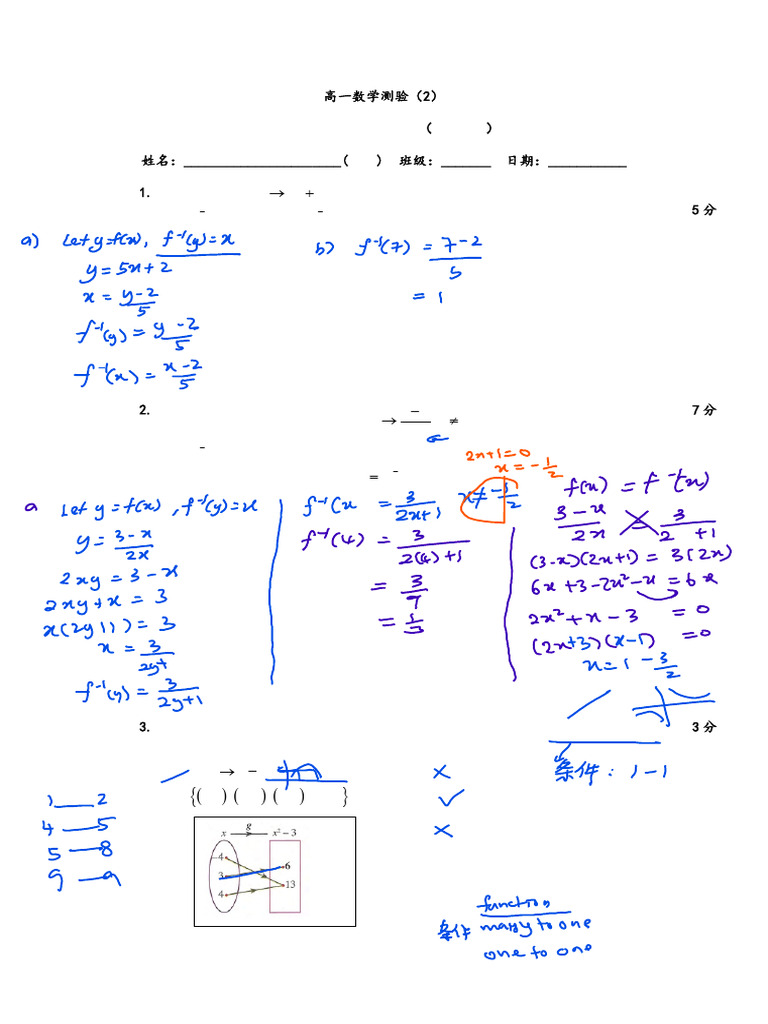 高一数学测验（2）
（ ）
姓名：____________________( ) 班级：______ 日期：__________
1. → +
5 分
a) Let y=f(x), f⁻¹(y)=x
y = 5x+2
x = (y-2)/5
f⁻¹(y) = (y-2)/5
f⁻¹(x) = (x-2)/5
b) f⁻¹(7) = (7-2)/5
= 1
2. → ≠ 7 分
=
a Let y=f(x), f⁻¹(y)=x
y = (3-x)/2x
2xy = 3-x
2xy+x = 3
x(2y+1) = 3
x = 3/2y+
f⁻¹(y) = 3/(2y+1)
2x+1=0
x = -1/2
f⁻¹(x = 3/(2x+1) x≠-1/2
f⁻¹(4) = 3/(2(4)+1)
= 3/9
= 1/3
f(x) = f⁻¹(x)
(3-x)/2x = 3/(2 +1)
(3-x)(2x+1) = 3(2x)
6x+3-2x²-x = 6x
2x²+x-3 = 0
(2x+3)(x-1) =0
x=1 -3/2
3. 3 分
→ −
×
条件: 1-1
{( ) ( ) ( ) }
✓
×
1 2
4 5
5 8
9 9
x g x² − 3
−4
3
4
6
13
function
条件 many to one
one to one